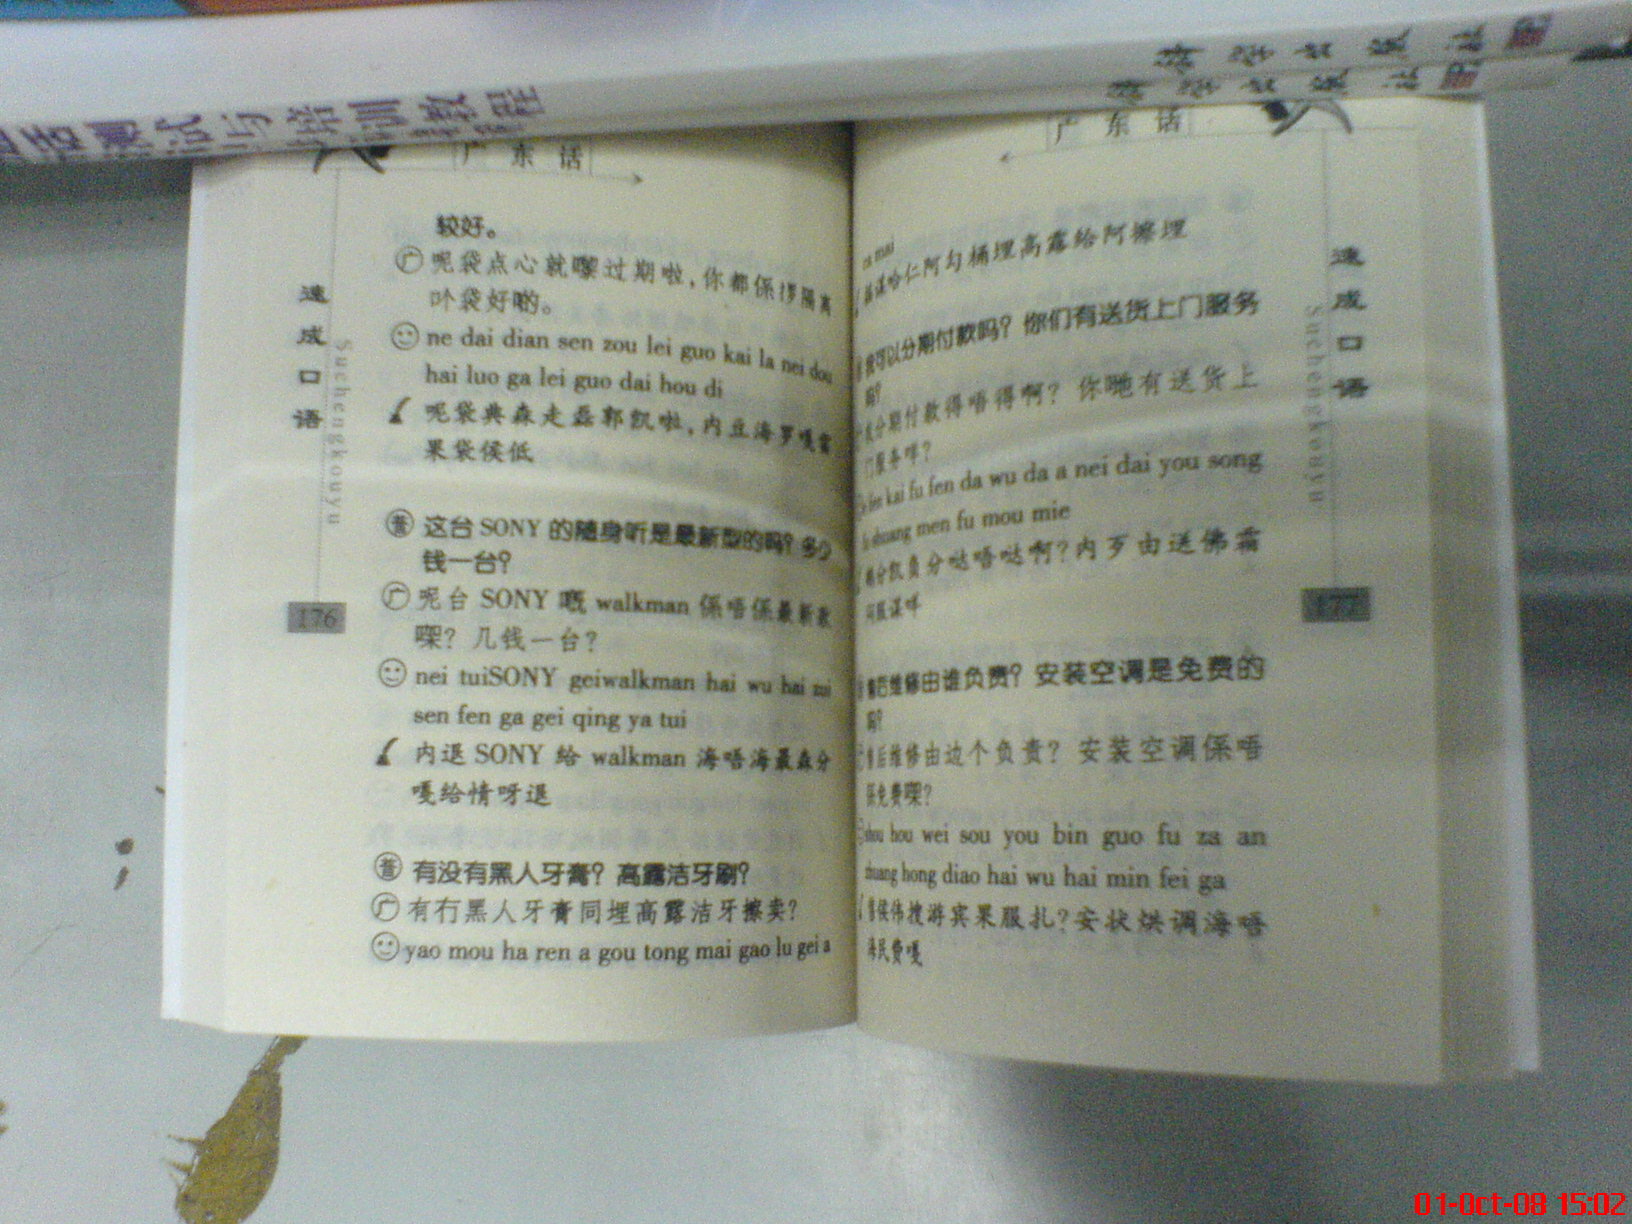 测试与培训教程
科学出版社
科学出版社
广东话
较好。
广 呢袋点心就嚟过期啦，你都係攞隔离
嗰袋好啲。
ne dai dian sen zou lei guo kai la nei dou
hai luo ga lei guo dai hou di
呢袋典森走磊郭凯啦，内豆海罗嘎雷
果袋侯低
普 这台 SONY 的随身听是最新型的吗？多少
钱一台？
广 呢台 SONY 嘅 walkman 係唔係最新款
㗎？几钱一台？
nei tuiSONY geiwalkman hai wu hai zui
sen fen ga gei qing ya tui
内退 SONY 给 walkman 海唔海最森分
嘎给情呀退
普 有没有黑人牙膏？高露洁牙刷？
广 有冇黑人牙膏同埋高露洁牙擦卖？
yao mou ha ren a gou tong mai gao lu gei a
速成口语
Suchengkouyu
176
广东话
mai
谋哈仁阿勾桶埋高露给阿擦埋
我可以分期付款吗？你们有送货上门服务
吗？
分期付款得唔得啊？你哋有送货上
门服务咩？
fen kai fu fen da wu da a nei dai you song
shuang men fu mou mie
分凯负分哒唔哒啊？内歹由送佛霜
闷服谋咩
售后维修由谁负责？安装空调是免费的
吗？
售后维修由边个负责？安装空调係唔
係免费㗎？
shou hou wei sou you bin guo fu za an
zhuang hong diao hai wu hai min fei ga
售侯伟搜游宾果服扎？安状烘调海唔
海民费嘎
速成口语
Suchengkouyu
177
01-Oct-08 15:02